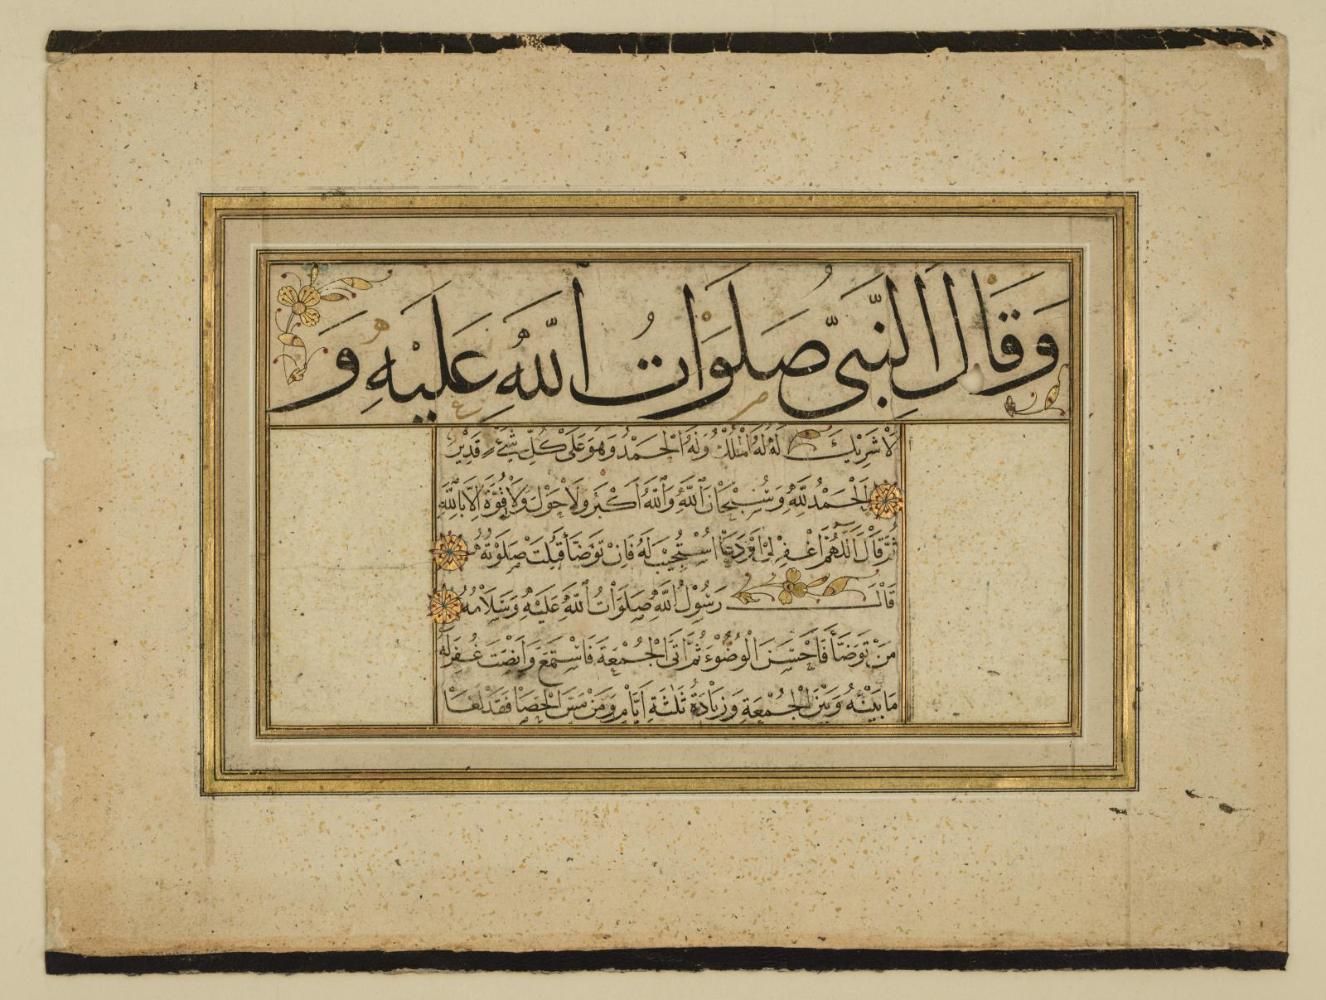 وَقَالَ النَّبِىُّ صَلَوَاتُ اللّٰهِ عَلَيْهِ وَ
لَا شَرِيْكَ لَهُ لَهُ الْمُلْكُ وَلَهُ الْحَمْدُ وَهُوَ عَلٰى كُلِّ شَيْءٍ قَدِيْرٌ
اَلْحَمْدُ لِلّٰهِ وَسُبْحَانَ اللّٰهِ وَاللّٰهُ اَكْبَرُ وَلَا حَوْلَ وَلَا قُوَّةَ اِلَّا بِاللّٰهِ
ثُمَّ قَالَ اَللّٰهُمَّ اغْفِرْ لِىْ اَوْ دَعَا اسْتُجِيْبَ لَهُ فَاِنْ تَوَضَّأَ قُبِلَتْ صَلٰوتُهُ
قَالَ رَسُوْلُ اللّٰهِ صَلَوَاتُ اللّٰهِ عَلَيْهِ وَسَلَامُهُ
مَنْ تَوَضَّأَ فَاَحْسَنَ الْوُضُوْءَ ثُمَّ اَتَى الْجُمُعَةَ فَاسْتَمَعَ وَاَنْصَتَ غُفِرَ لَهُ
مَا بَيْنَهُ وَبَيْنَ الْجُمُعَةِ وَزِيَادَةُ ثَلٰثَةِ اَيَّامٍ وَمَنْ مَسَّ الْحَصَا فَقَدْ لَغَا